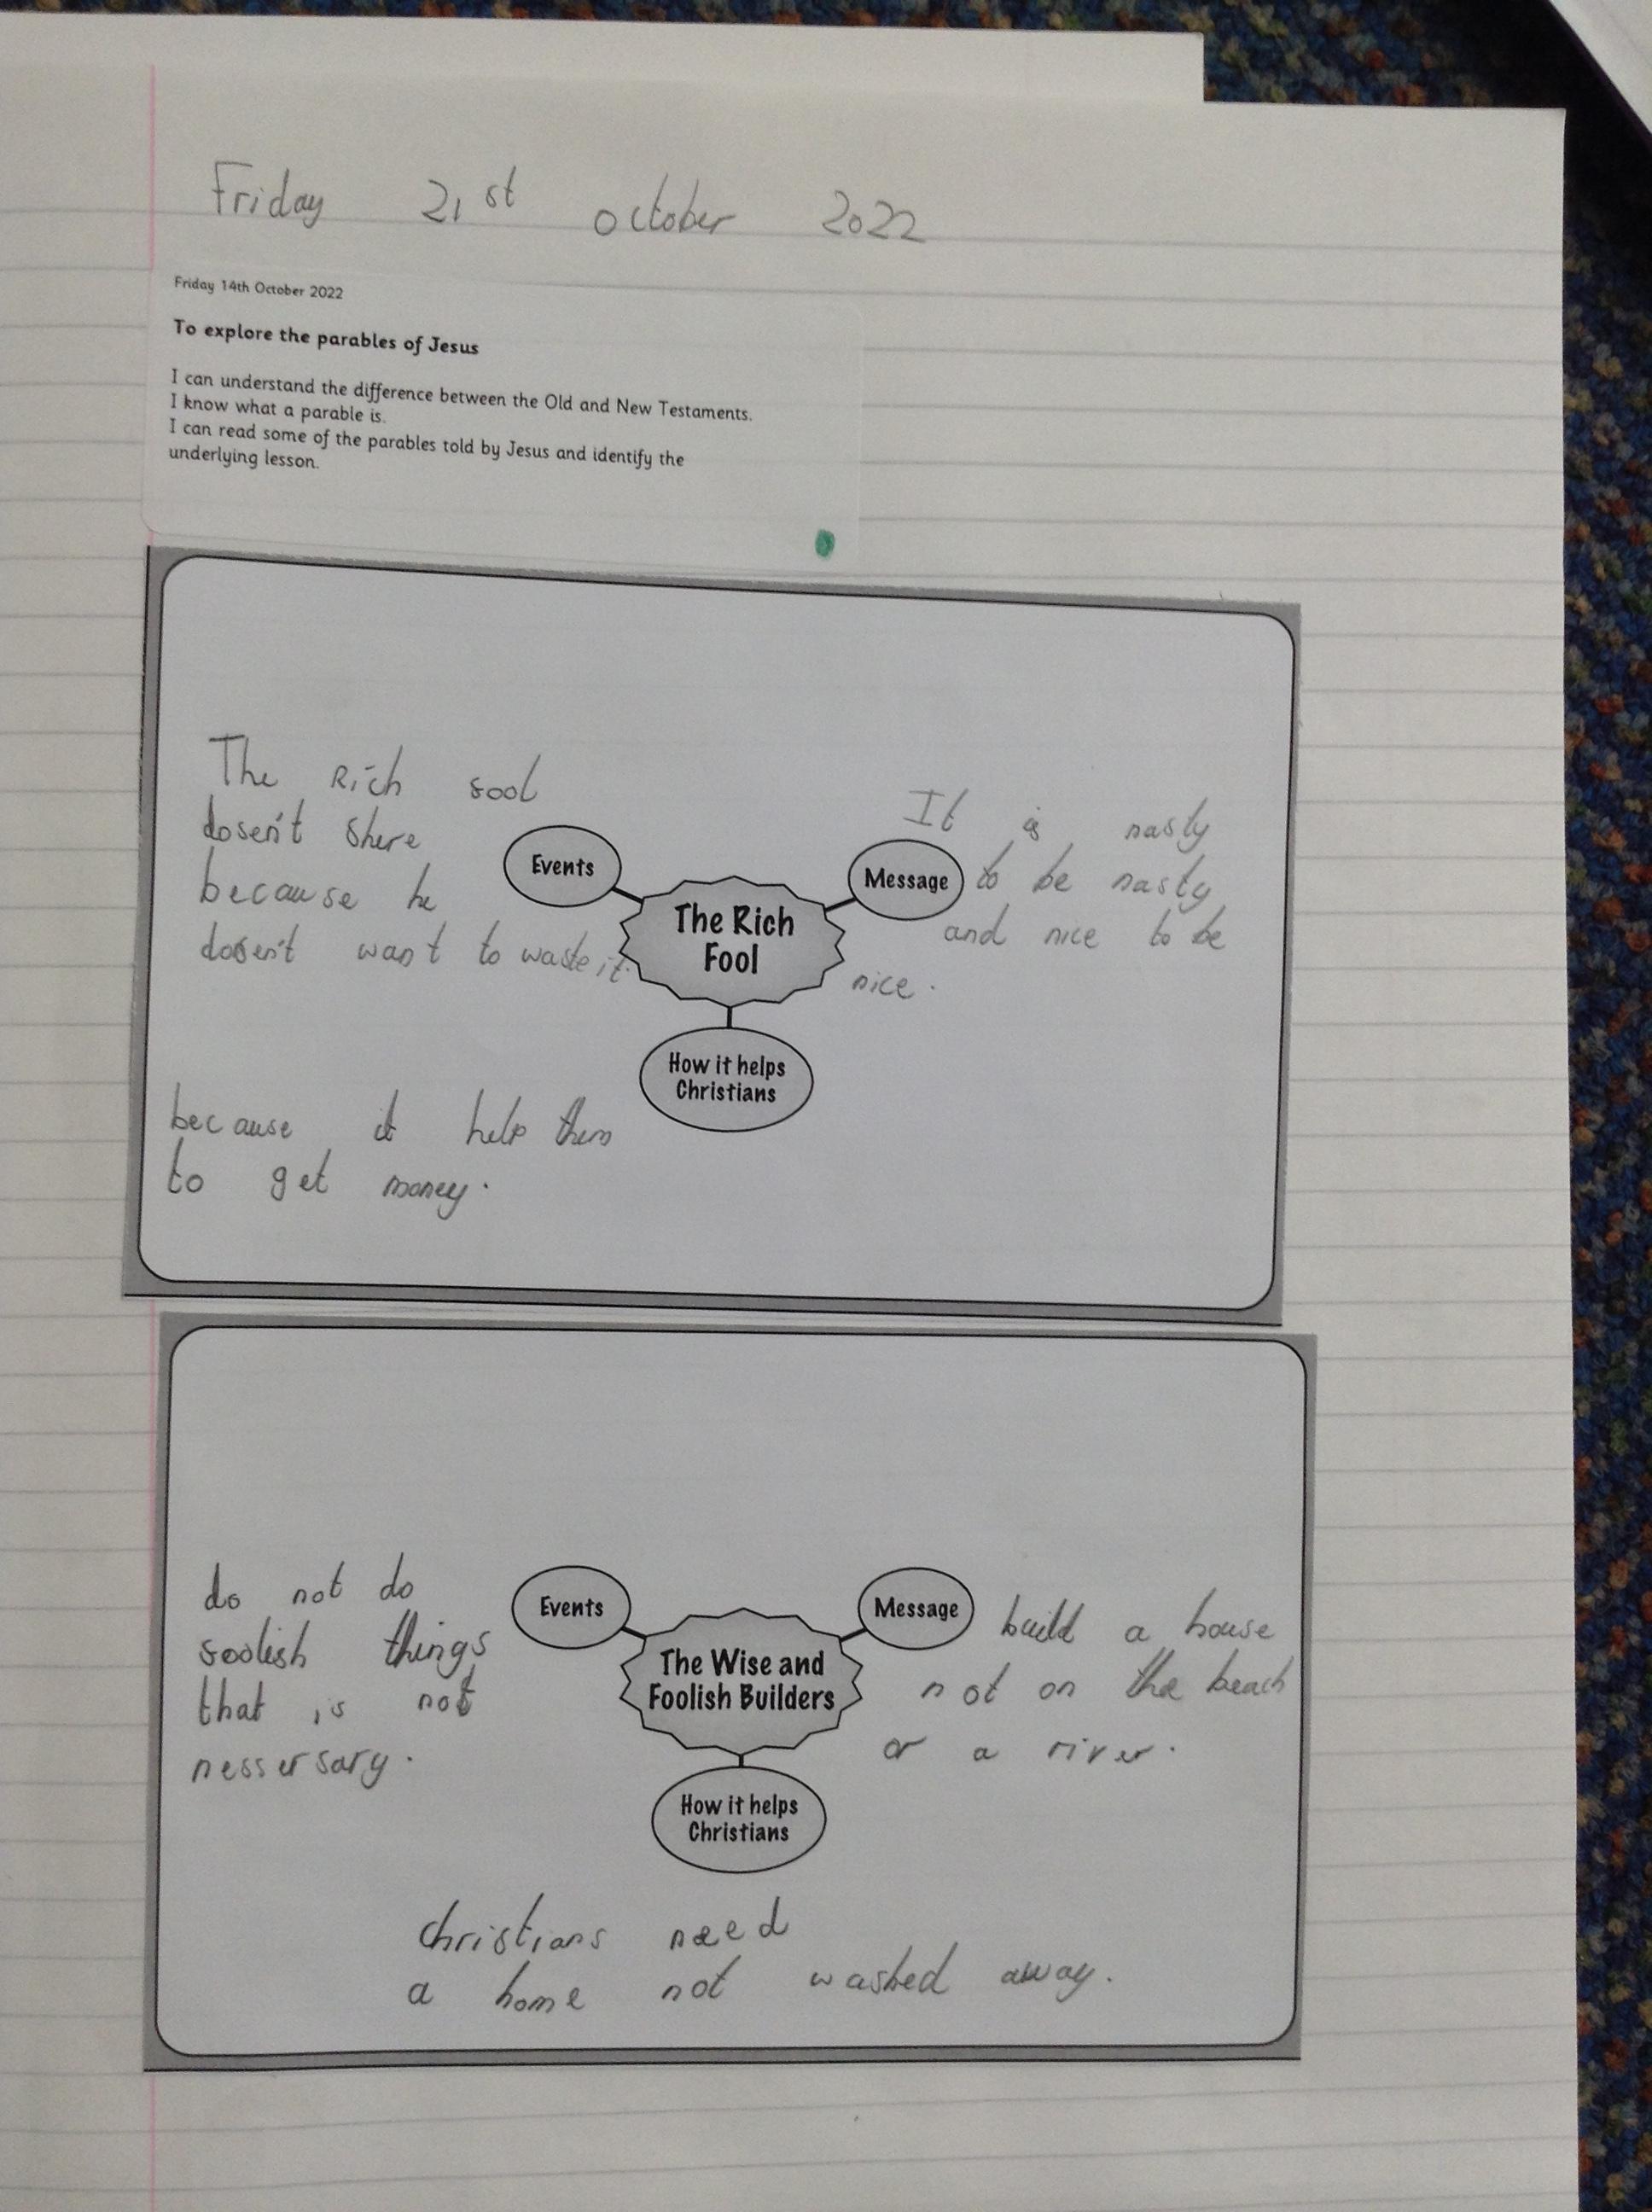 Friday 21st october 2022
Friday 14th October 2022
To explore the parables of Jesus
I can understand the difference between the Old and New Testaments.
I know what a parable is.
I can read some of the parables told by Jesus and identify the
underlying lesson.
The Rich fool
dosen't shere
because he
dosen't want to waste it.
Events
Message
It is nasty
to be nasty
and nice to be
nice.
The Rich
Fool
How it helps
Christians
because it help them
to get money.
do not do
foolish things
that is not
nessersary.
Events
Message
build a house
not on the beach
or a river.
The Wise and
Foolish Builders
How it helps
Christians
christians need
a home not washed away.